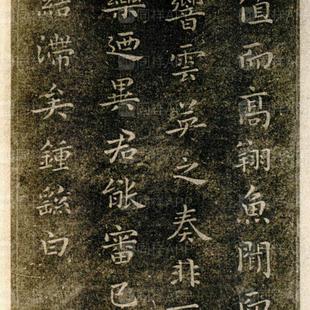 值而高翔魚聞而
響雲英之奏非
樂迺異君能審己
結滯矣鍾繇白